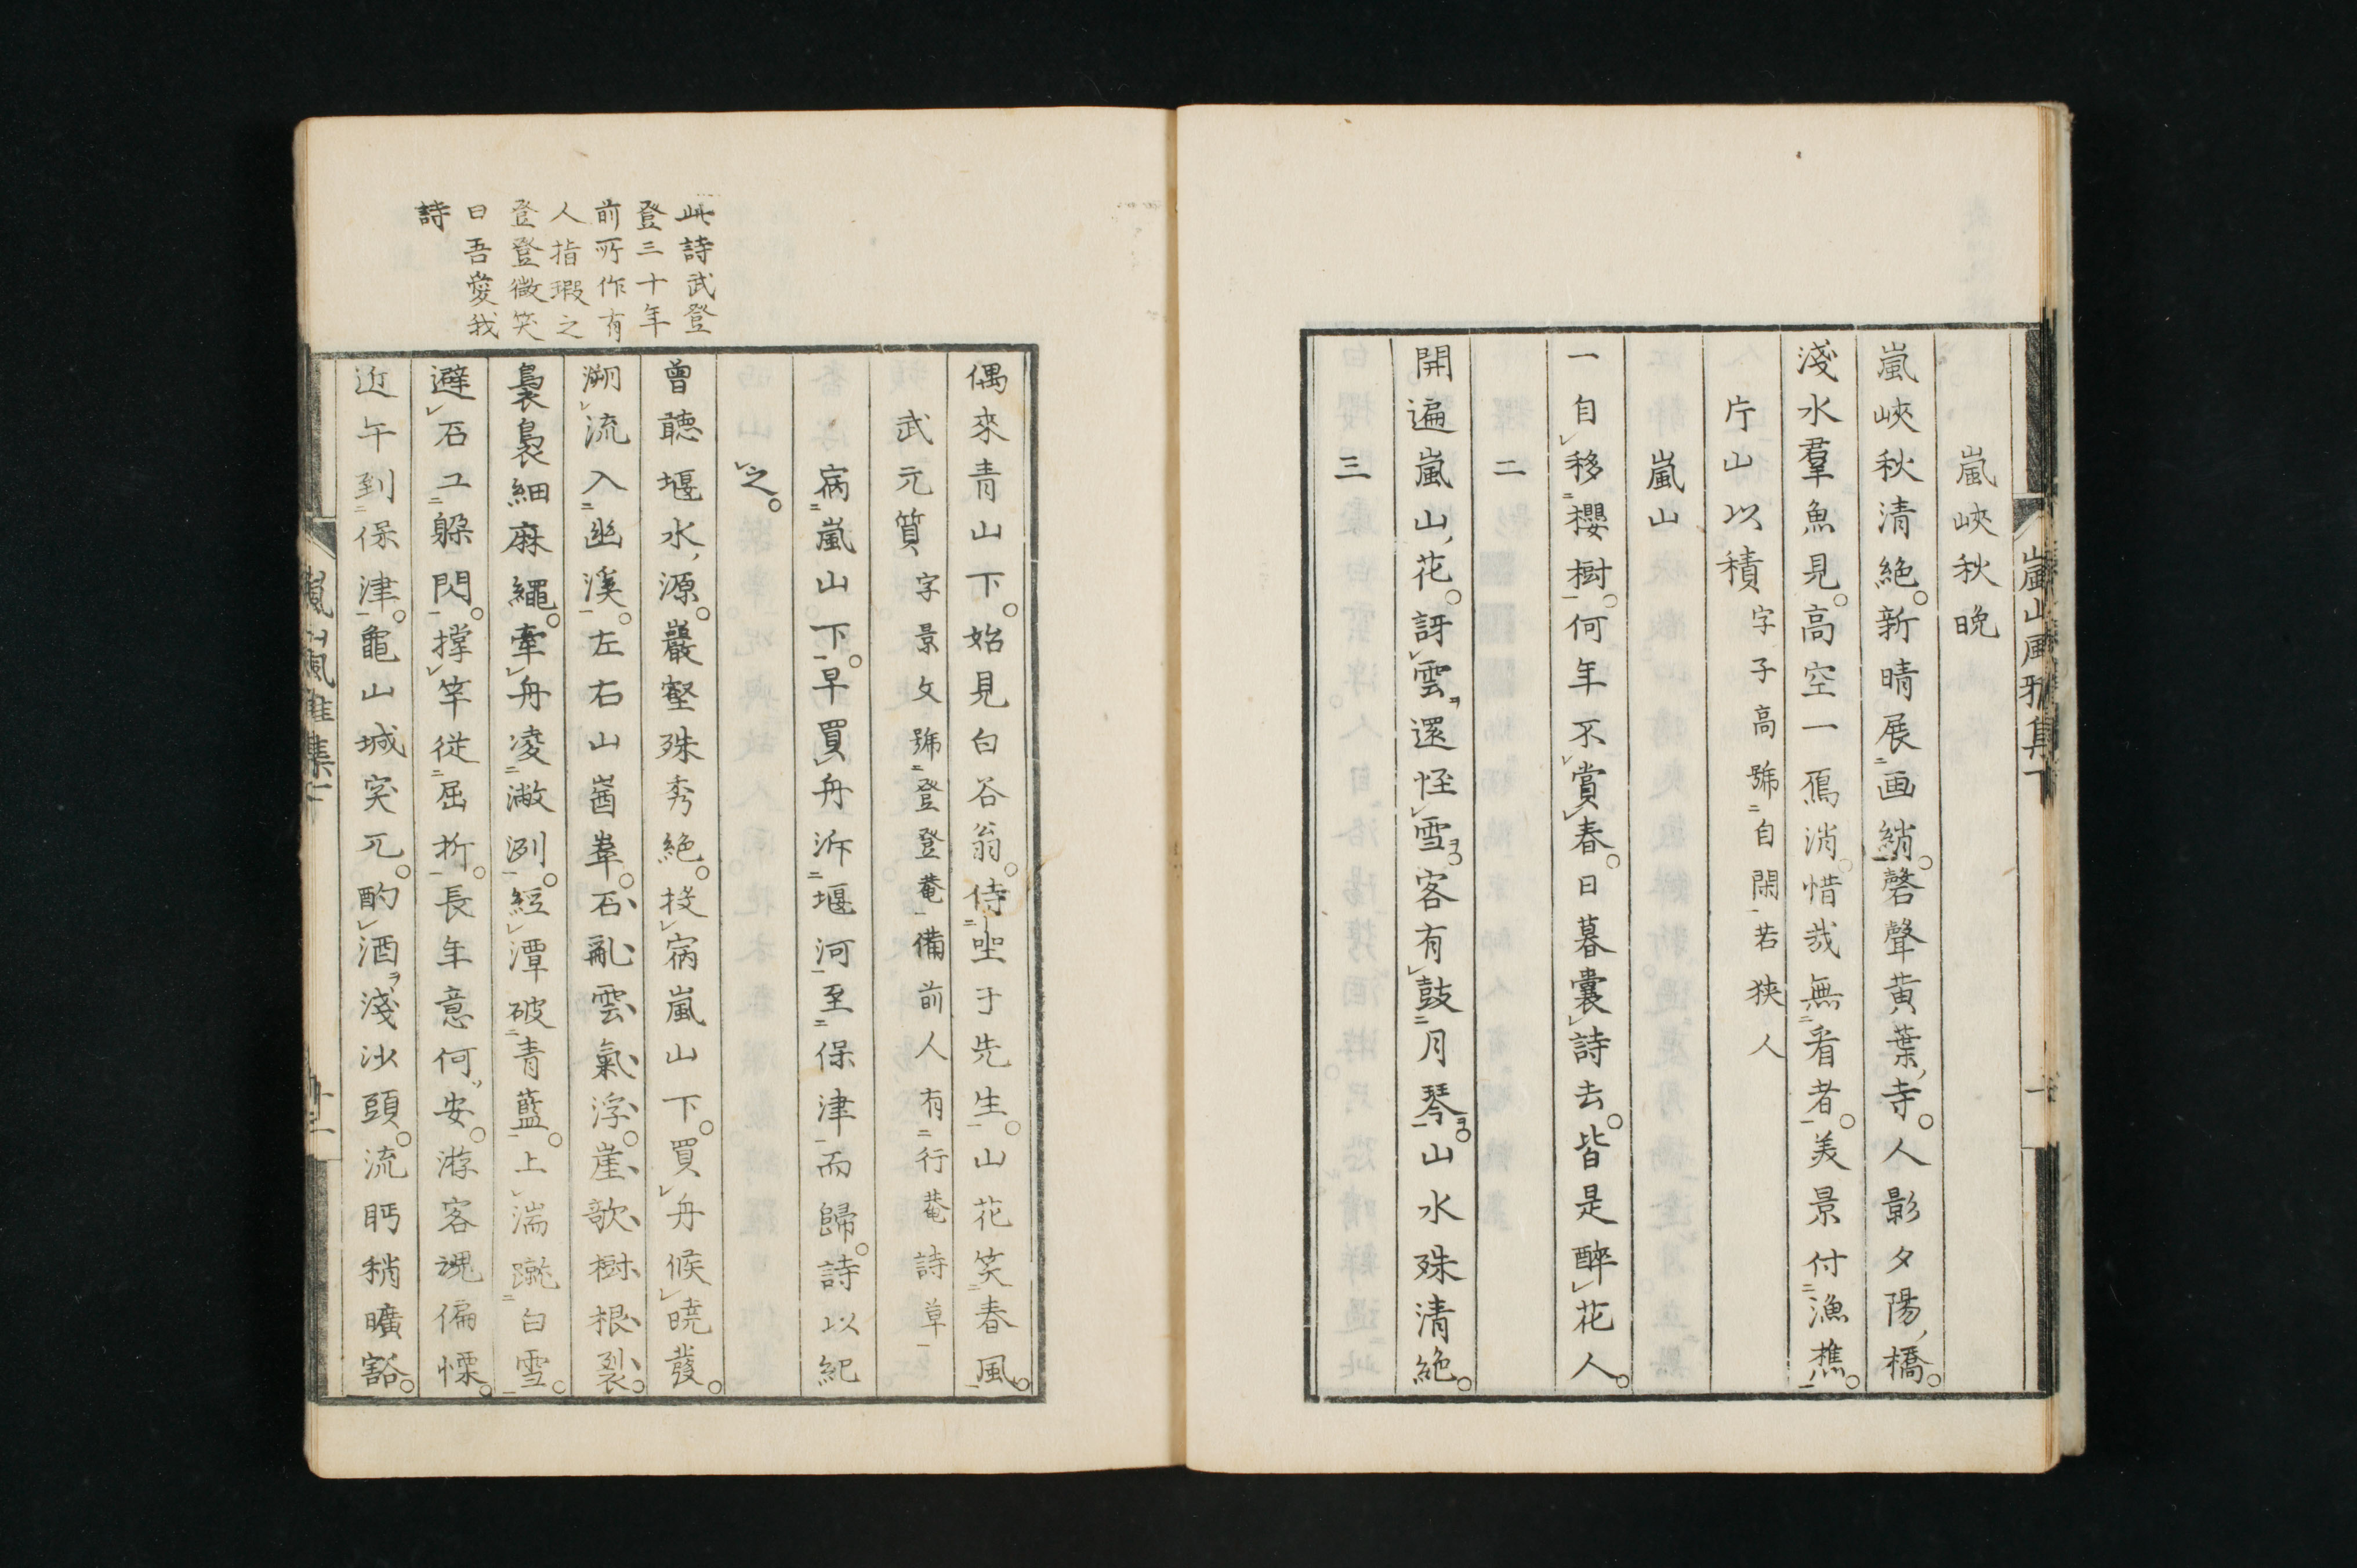 嵐峽秋晩
嵐峽秋清絶。新晴展画綃。磬聲黄葉寺。人影夕陽橋。
淺水羣魚見。高空一鴈消。惜哉無看者。美景付漁樵。
片山以積 字子高號自閑若狭人
嵐山
一自移櫻樹。何年不賞春。日暮囊詩去。皆是醉花人。
二
開遍嵐山花。訝雲還怪雪。客有鼓月琴。山水殊清絶。
三
嵐山風雅集下
偶來青山下。始見白谷翁。侍坐于先生。山花笑春風。
武元質 字景文號登登菴備前人有行菴詩草
宿嵐山下。早買舟泝堰河至保津而歸。詩以紀
之。
曾聽堰水源。巖壑殊秀絶。投宿嵐山下。買舟候曉發。
溯流入幽溪。左右山崷崒。石亂雲氣浮。崖欹樹根裂。
裊裊細麻繩。牽舟凌潎洌。經潭破青藍。上湍蹴白雪。
避石工躱閃。撑竿從屈折。長年意何安。游客魂偏慄。
近午到保津。龜山城突兀。酌酒淺沙頭。流眄稍曠豁。
此詩武登
登三十年
前所作有
人指瑕之
登登微笑
曰吾愛我
詩